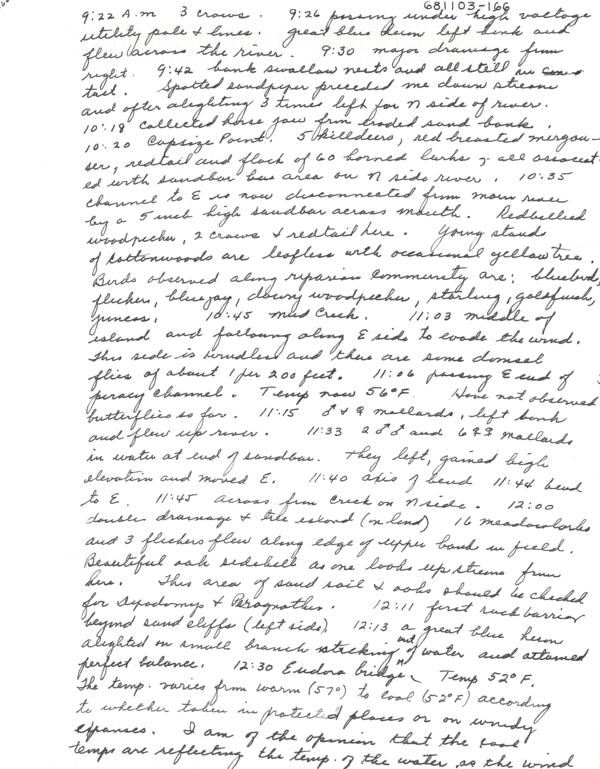 681103-166
9:22 A.m 3 crows. 9:26 passing under high voltage
utility pole & lines. great blue heron left bank and
flew across the river. 9:30 major drainage from
right. 9:42 bank swallow nests and all still in
tact. Spotted sandpiper preceded me down stream
and after alighting 3 times left for N side of river.
10:18 collected horse jaw from eroded sand bank.
10:20 Capsize Point. 5 killdeers, red breasted mergan-
ser, redtail and flock of 60 horned larks, all associat-
ed with sandbar area on N side river. 10:35
channel to E is now disconnected from main river
by a 5 inch high sandbar across mouth. Redbellied
woodpecker, 2 crows & redtail here. Young stands
of cottonwoods are leafless with occasional yellow tree.
Birds observed along riparian community are: bluebird,
flicker, bluejay, downy woodpecker, starling, goldfinch,
juncos. 10:45 Mud Creek. 11:03 middle of
island and following along E side to evade the wind.
This side is windless and there are some damsel
flies of about 1 per 200 feet. 11:06 passing E end of
piracy channel. Temp now 56°F. Have not observed
butterflies so far. 11:15 ♂ & ♀ mallards, left bank
and flew up river. 11:33 2 ♂♂ and 6 ♀♀ mallards
in water at end of sandbar. They left, gained high
elevation and moved E. 11:40 axis of bend 11:44 bend
to E. 11:45 across from creek on N side. 12:00
double drainage & tree island (on land) 16 meadowlarks
and 3 flickers flew along edge of upper bank in field.
Beautiful oak sidehill as one looks up stream from
here. This area of sand soil & oaks should be checked
for Dipodomys & Perognathus. 12:11 first rock barrier
beyond sand cliffs (left side). 12:13 a great blue heron
alighted on small branch sticking out of water and attained
perfect balance. 12:30 Eudora bridge. Temp 52°F.
The temp. varies from warm (57°) to cool (52°F) according
to whether taken in protected places or on windy
expanses. I am of the opinion that the cool
temps are reflecting the temp. of the water as the wind